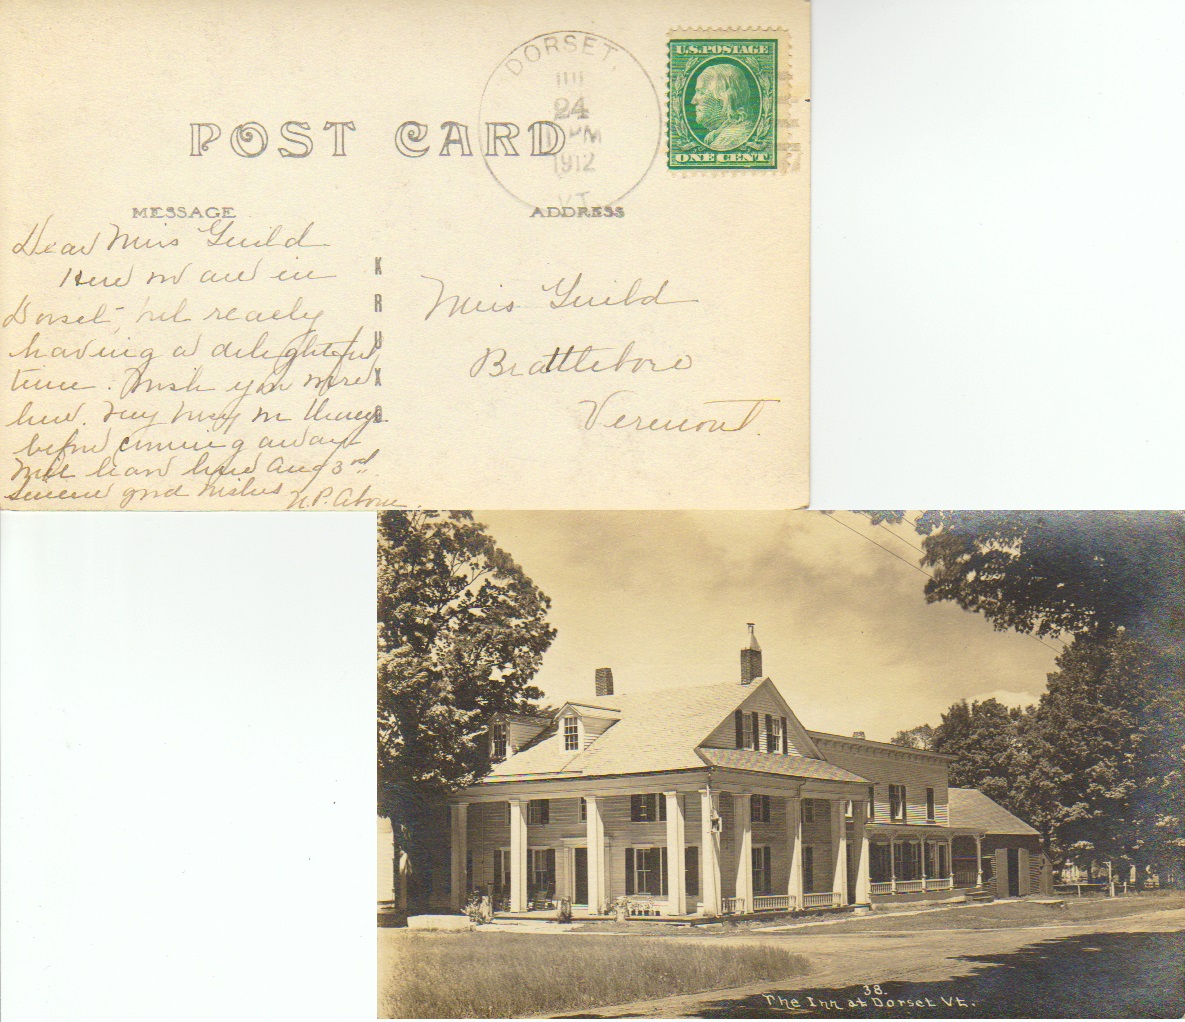 DORSET,
JUL
24
PM
1912
VT.
U.S. POSTAGE
ONE CENT
POST CARD
MESSAGE
ADDRESS
Dear Miss Guild
Here we are in
Dorset, and really
having a delightful
time. Wish you were
here. Very busy in things
before coming away
Will leave here Aug 3rd.
Sincere good wishes N.P.
KRUXO
Miss Guild
Brattleboro
Vermont.
38.
The Inn at Dorset Vt.